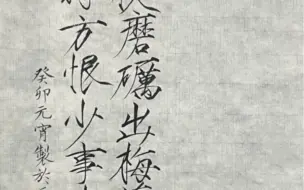 磨礪出梅
方恨少事
癸卯元宵製於